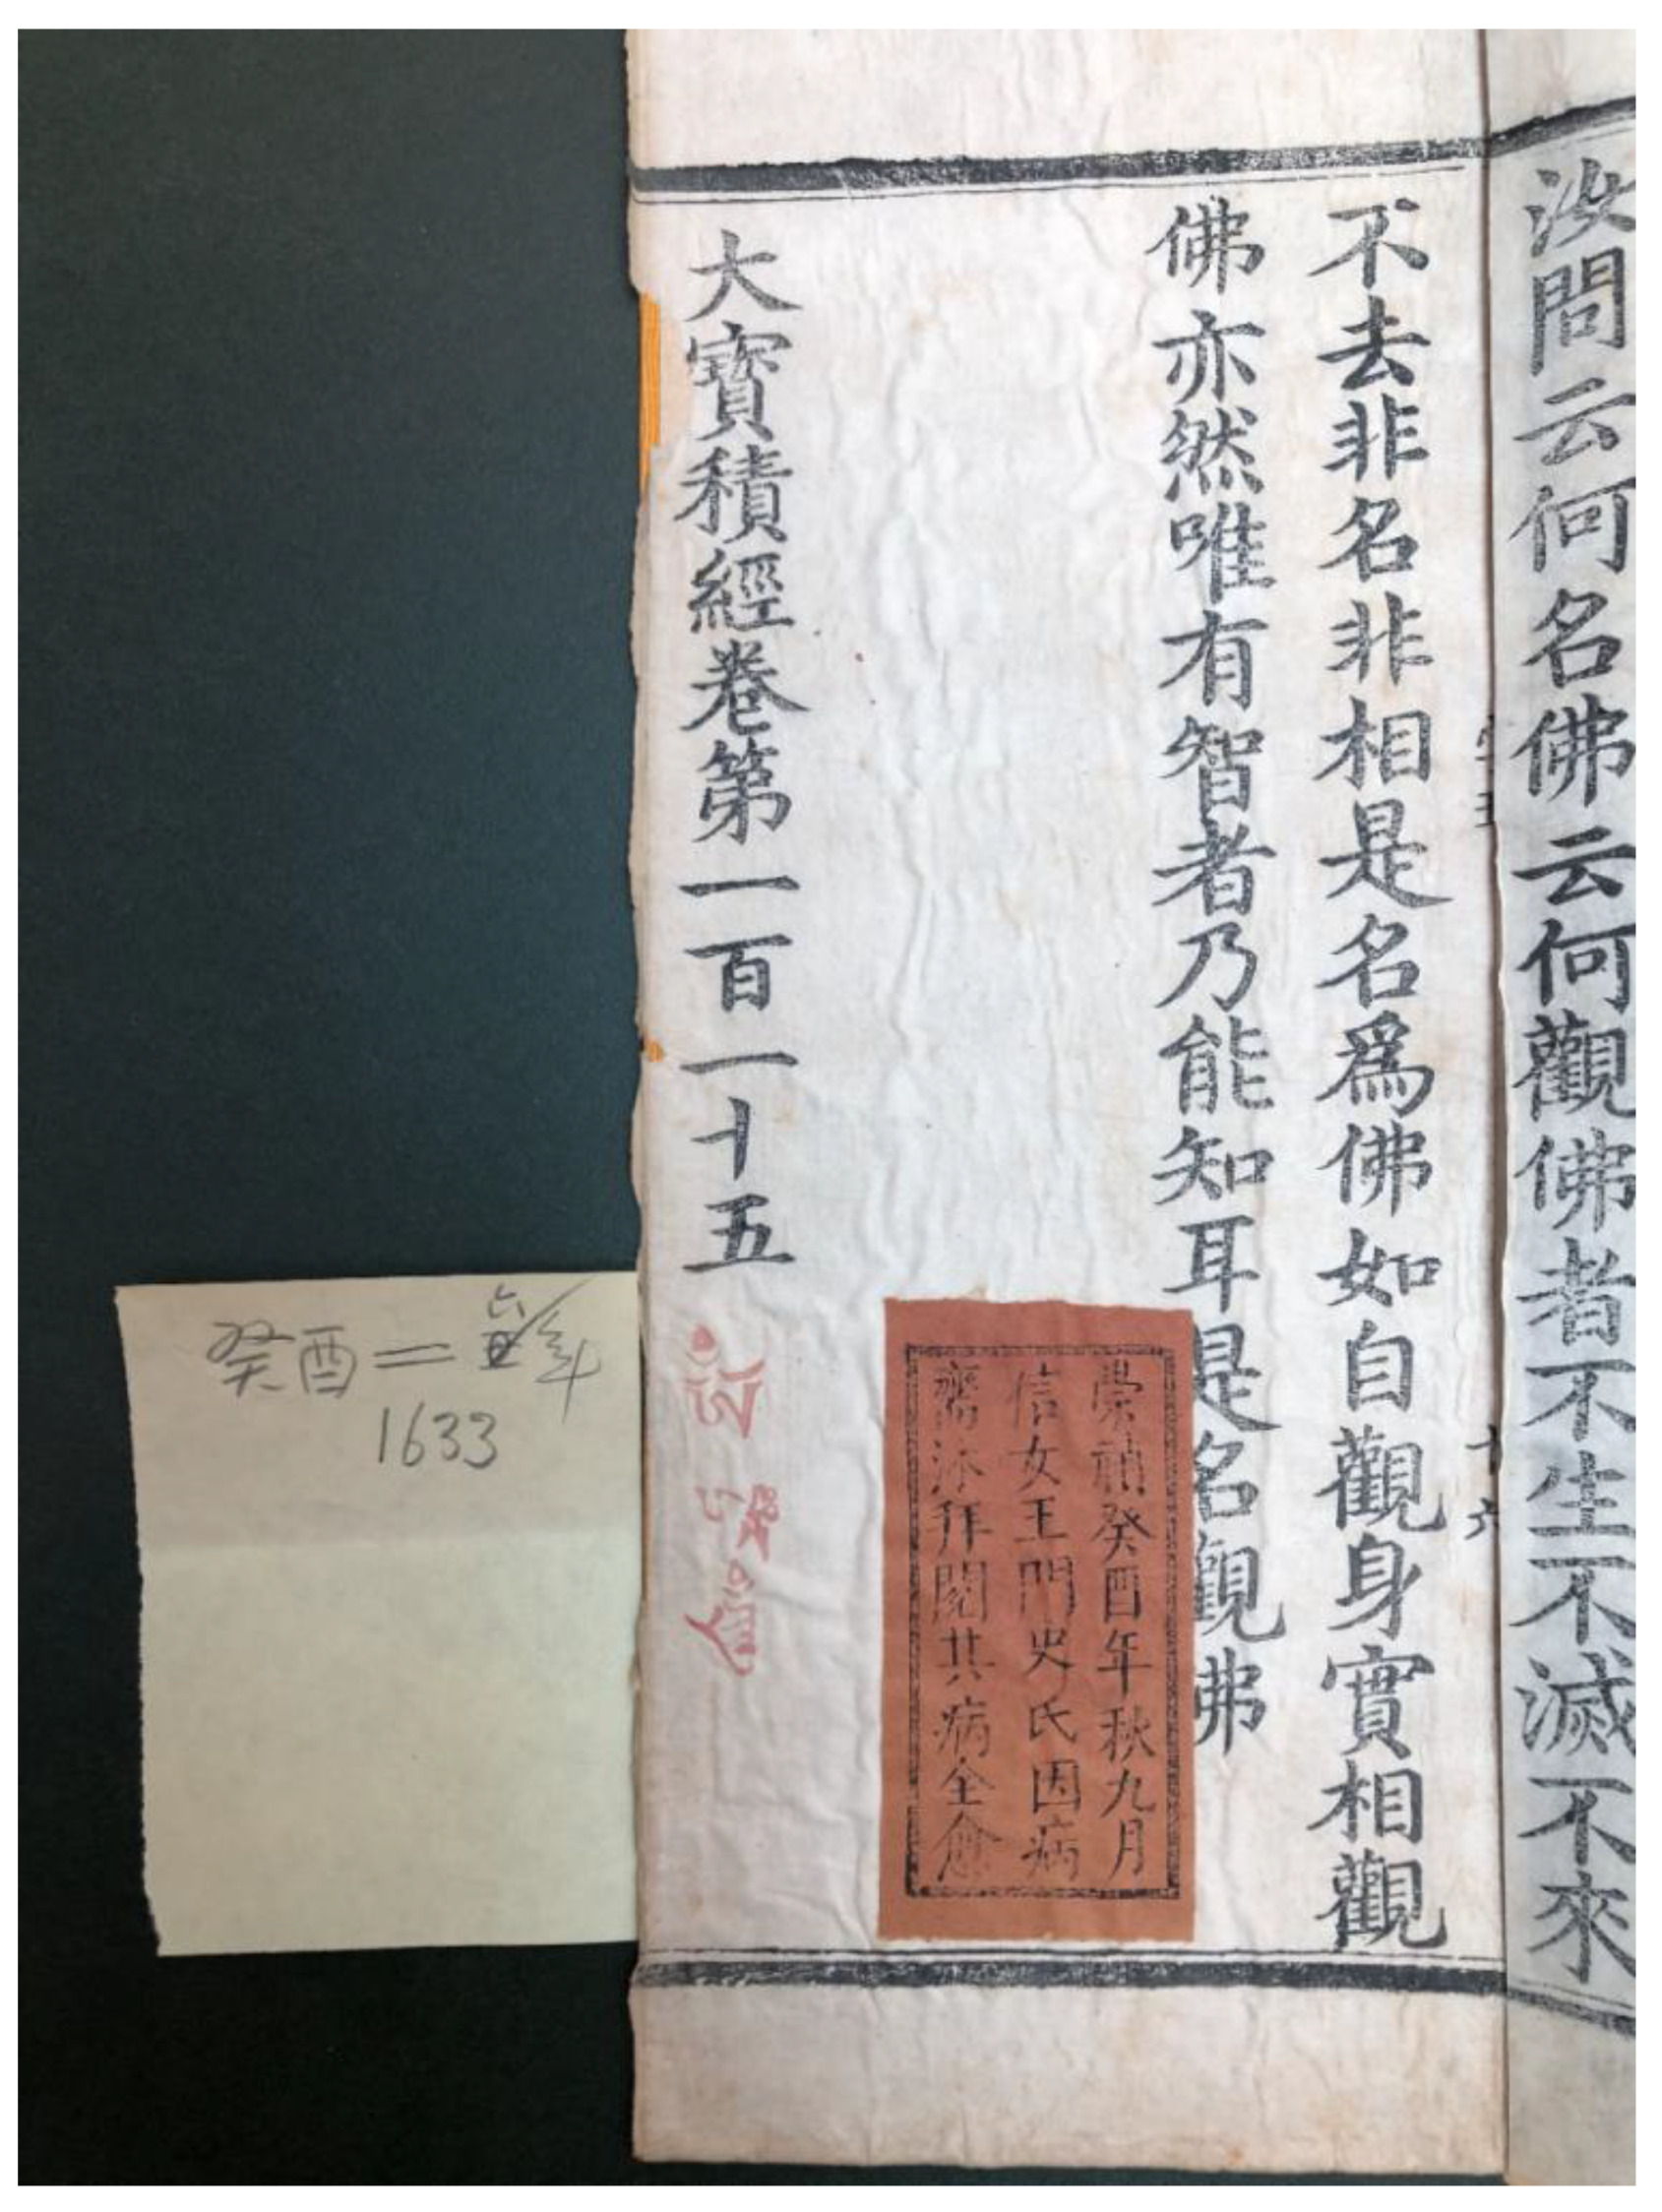 汝問云何名佛云何觀佛者不生不滅不來
不去非名非相是名爲佛如自觀身實相觀
佛亦然唯有智者乃能知耳是名觀佛
崇禎癸酉年秋九月
信女王門史氏因病
齋沐拜閱其病全愈
大寶積經卷第一百一十五
十六
癸酉=六年
1633